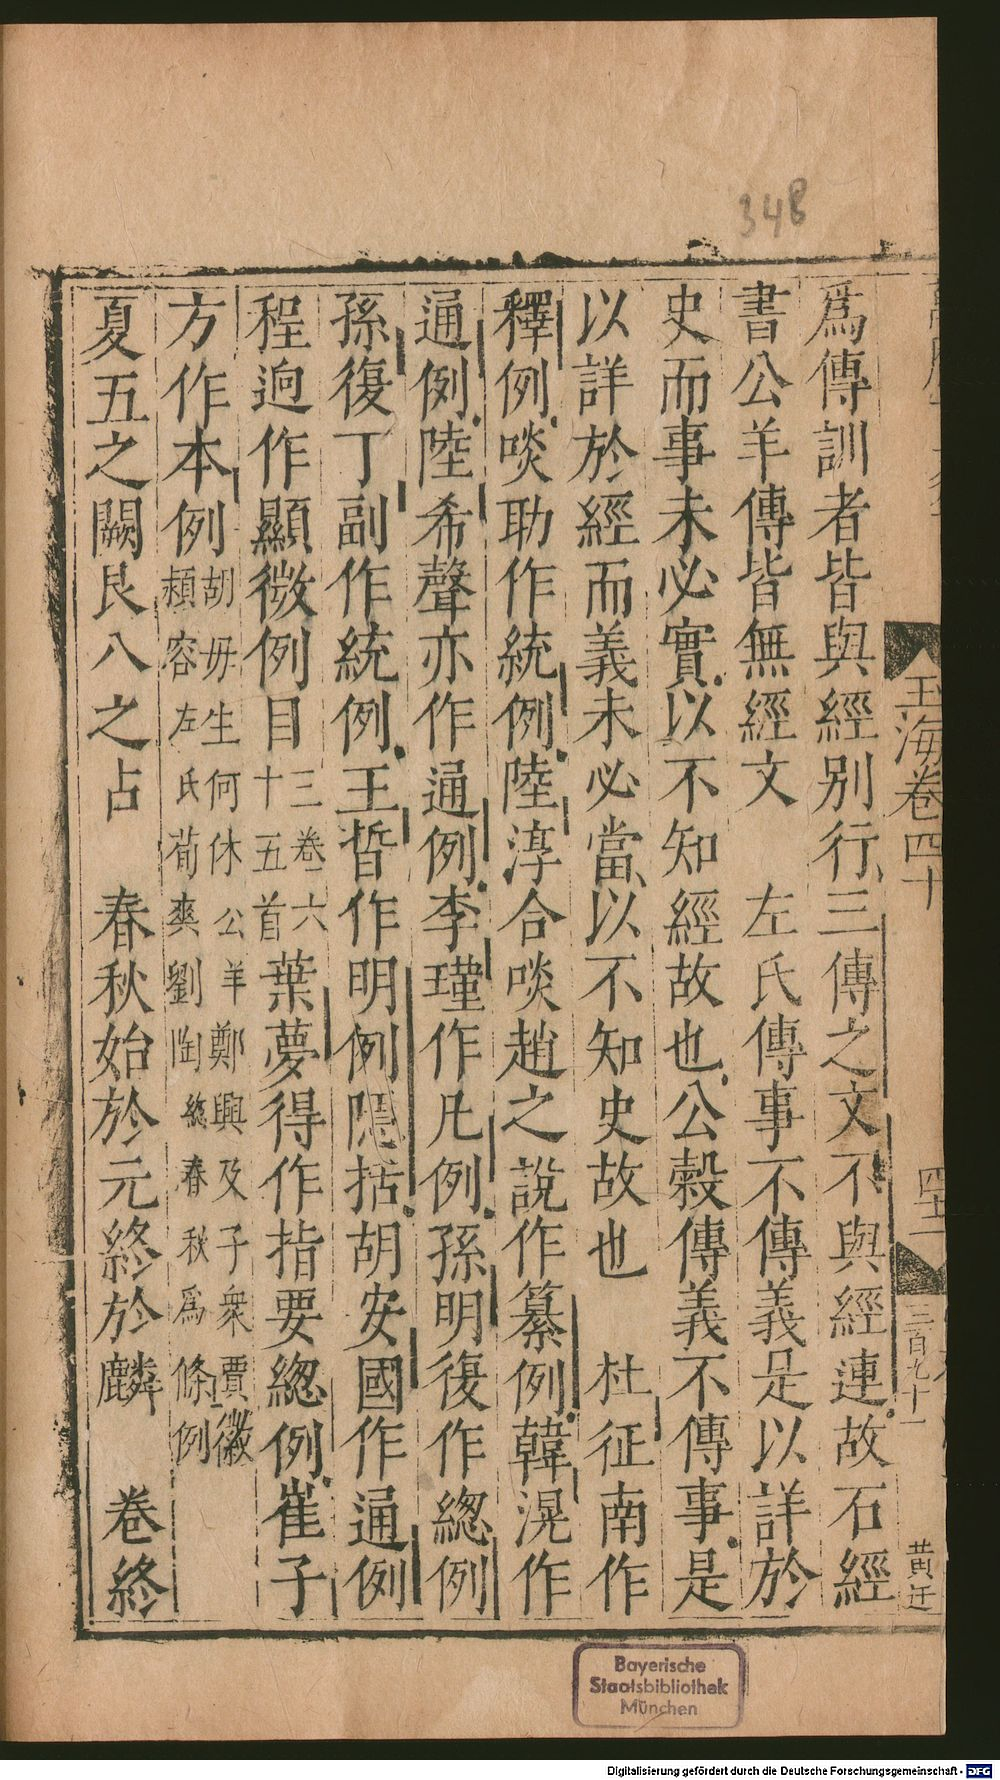 348
玉海卷四十
四十二
三百九十一
黄迁
爲傳訓者皆與經别行三傳之文不與經連故石經
書公羊傳皆無經文 左氏傳事不傳義是以詳於
史而事未必實以不知經故也公榖傳義不傳事是
以詳於經而義未必當以不知史故也 杜征南作
釋例啖助作統例陸淳合啖趙之說作纂例韓滉作
通例陸希聲亦作通例李瑾作凡例孫明復作緫例
孫復丁副作統例王晳作明例隱括胡安國作通例
程迥作顯微例目三卷六十五首葉夢得作指要緫例崔子
方作本例胡毋生何休公羊鄭興及子衆賈徽頴容左氏荀爽劉陶緫春秋爲條例
夏五之闕艮八之占 春秋始於元終於麟 卷終
Bayerische
Staatsbibliothek
München
Digitalisierung gefördert durch die Deutsche Forschungsgemeinschaft - DFG